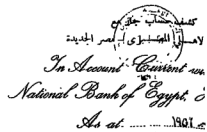 كشف حساب جاري مع
الاهلي المصري - مصر الجديدة
In Account Current with
National Bank of Egypt,
As at ........ ١٩٥٢